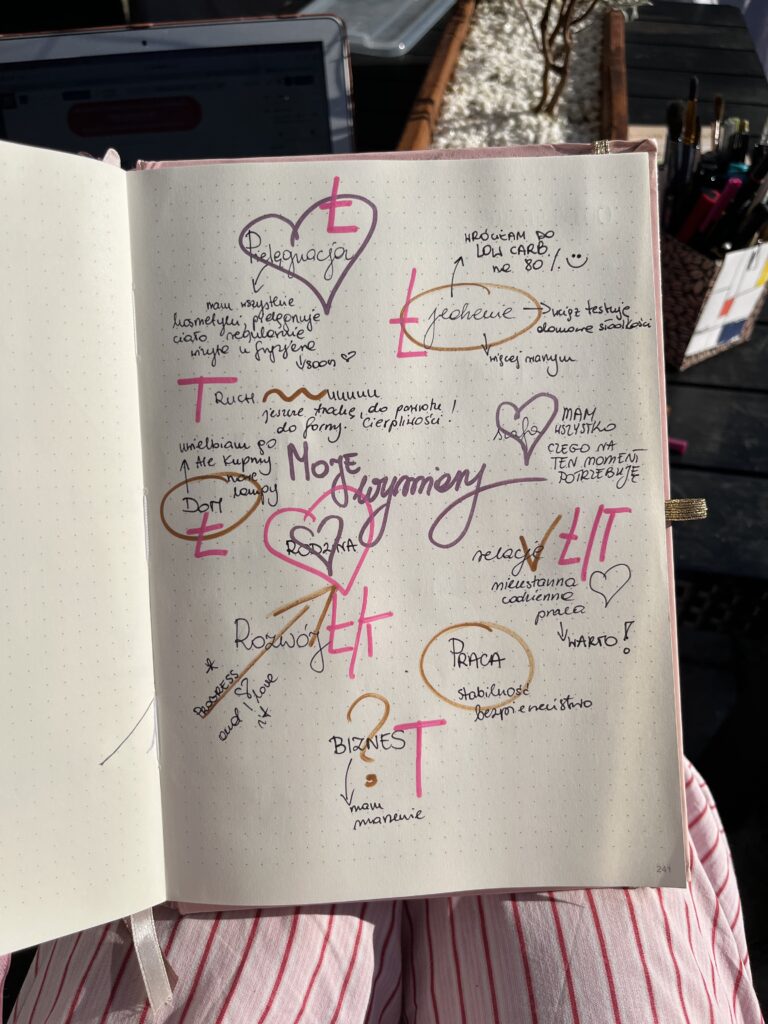 Ł
Pielęgnacja
mam wszystkie
kosmetyki, pielęgnuję
ciało regularnie
wizyta u fryzjera
soon
WRÓCIŁAM DO
LOW CARB.
na 80%
Ł
jedzenie
wciąż testuję
domowe słodkości
więcej warzyw
T
RUCH
uuuuu
jeszcze trochę do powrotu!
do formy. Cierpliwości!
szafa
MAM
WSZYSTKO
CZEGO NA
TEN MOMENT
POTRZEBUJĘ
uwielbiam go
Ale kupmy
nowe
lampy
DOM
Ł
Moje
wymiary
RODZINA
relacje
Ł/T
nieustanna
codzienna
praca
WARTO!
Rozwój
Ł/T
PROGRESS
and! love
PRACA
stabilność
bezpieczeństwo
?
BIZNES
T
mam
marzenie
241